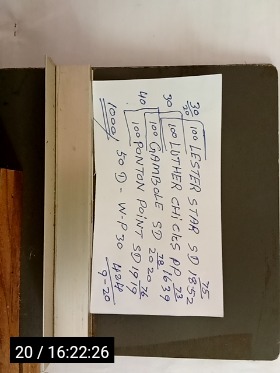 30/20 100 LESTER STAR SD 1852 75
30 100 LUTHER CHICKS PP 1639 73
40 100 GAMBOLE SD 2020 78
100 PONTON POINT SD 1919 76
1000/ 50 D - W-P 30 424
9-20
20 / 16:22:26